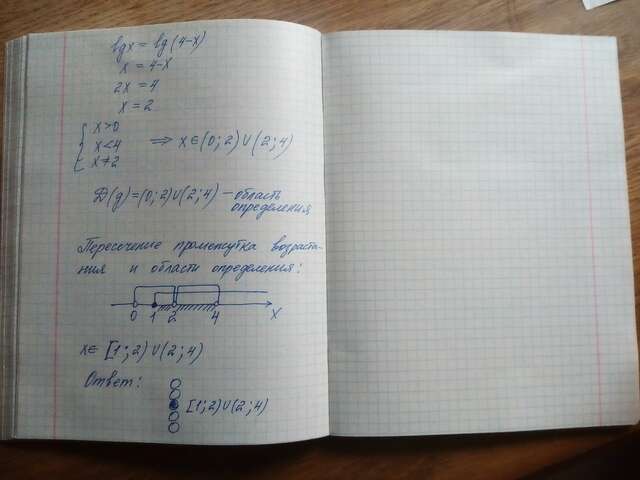 lgx = lg(4-x)
x = 4-x
2x = 4
x = 2
{ x>0
x<4 ⇒ x∈(0;2)∪(2;4)
x≠2
D(y)=(0;2)∪(2;4) – область
определения
Пересечение промежутка возраста-
ния и области определения:
0 1 2 4 x
x∈ [1;2)∪(2;4)
Ответ:
[1;2)∪(2;4)